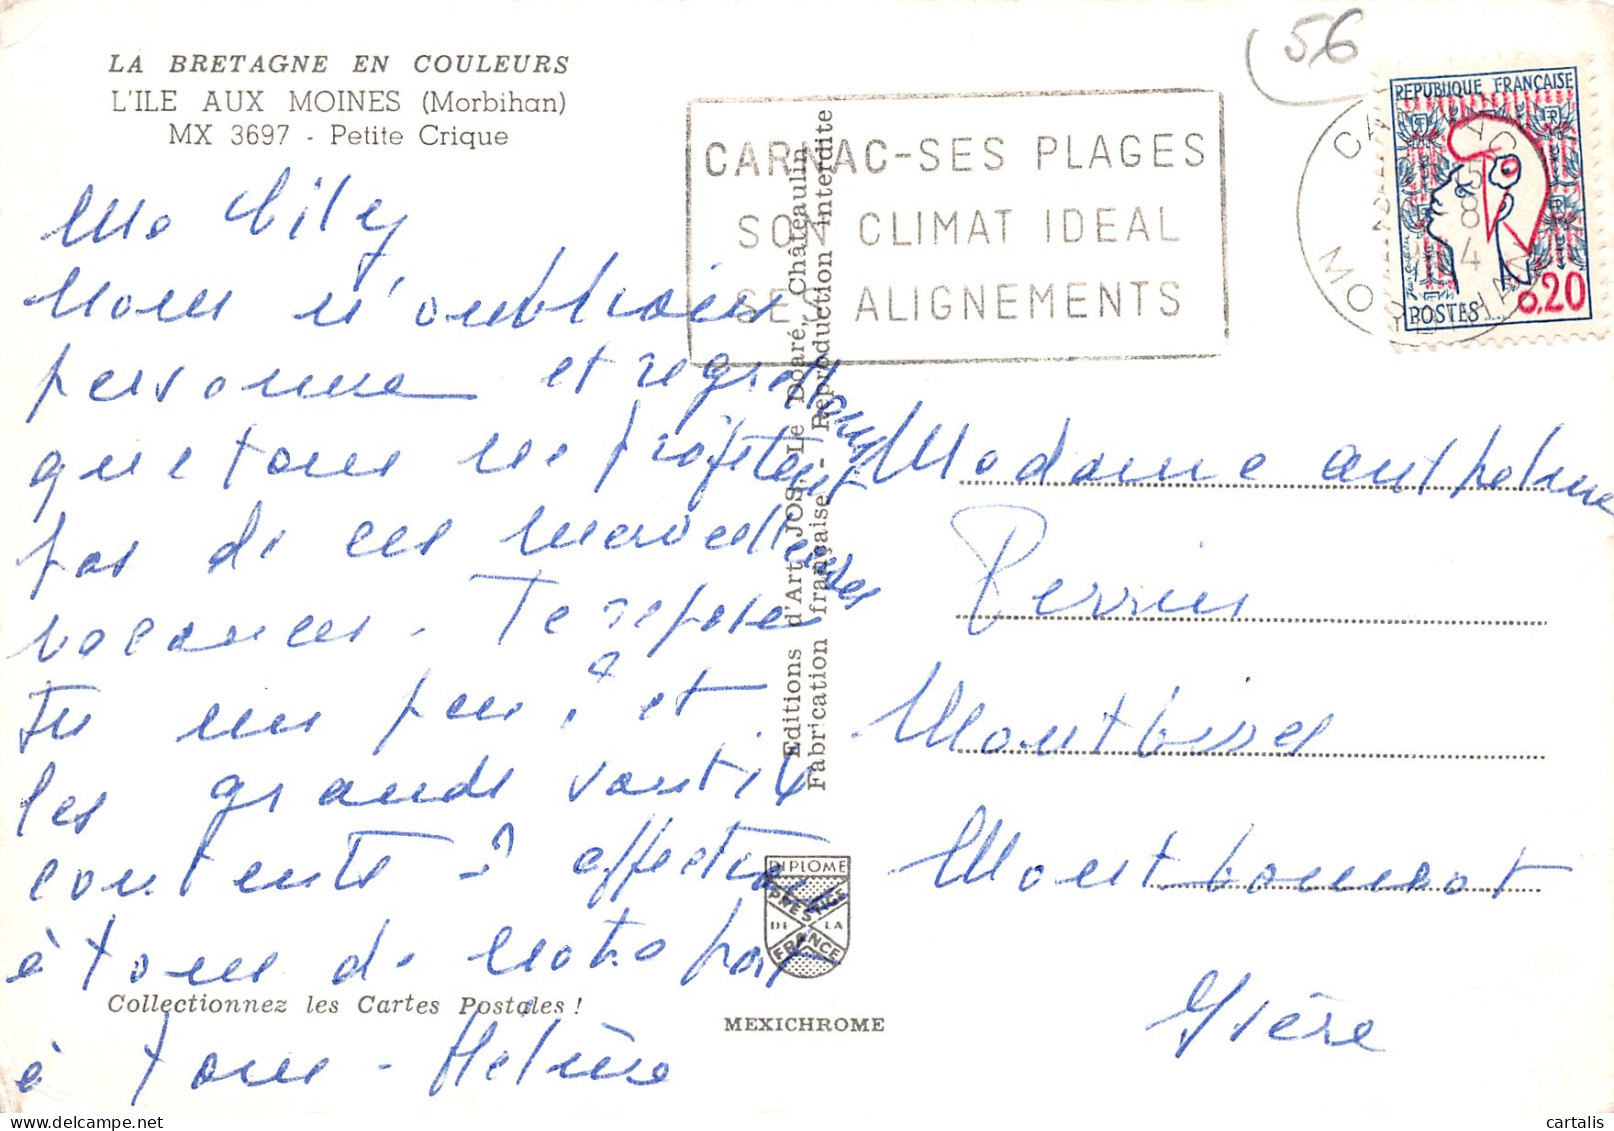 LA BRETAGNE EN COULEURS
L'ILE AUX MOINES (Morbihan)
MX 3697 - Petite Crique
Ma
Nous n'oublions
personne et regrettons
que tous ne profitent
pas de ces merveilleuses
vacances. Te reposes
Tu un peu ? et
les grands sont ils
contents - ? affection
à tous de notre part
à tous - Hélène
Collectionnez les Cartes Postales !
Editions d'Art JOS Le Doaré, Châteaulin
Fabrication française - Reproduction interdite
DIPLOME
PRESTIGE
DE LA
FRANCE
MEXICHROME
CARNAC-SES PLAGES
SON CLIMAT IDEAL
SES ALIGNEMENTS
56
REPUBLIQUE FRANÇAISE
0,20
POSTES
15
8
Madame Anthelme
Perrin
Montbives
Montbonnot
Isère
cartalis